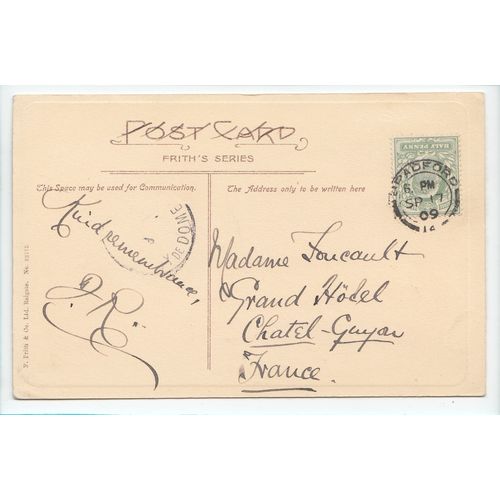 POST CARD
FRITH'S SERIES
This Space may be used for Communication.
The Address only to be written here
Kind remembrances,
J.R.
Madame Foucault
Grand Hôtel
Chatel-Guyon
France.
HALF PENNY
BRADFORD
6 PM
SP 17
09
14
DE DOME
F. Frith & Co. Ltd. Reigate. No.